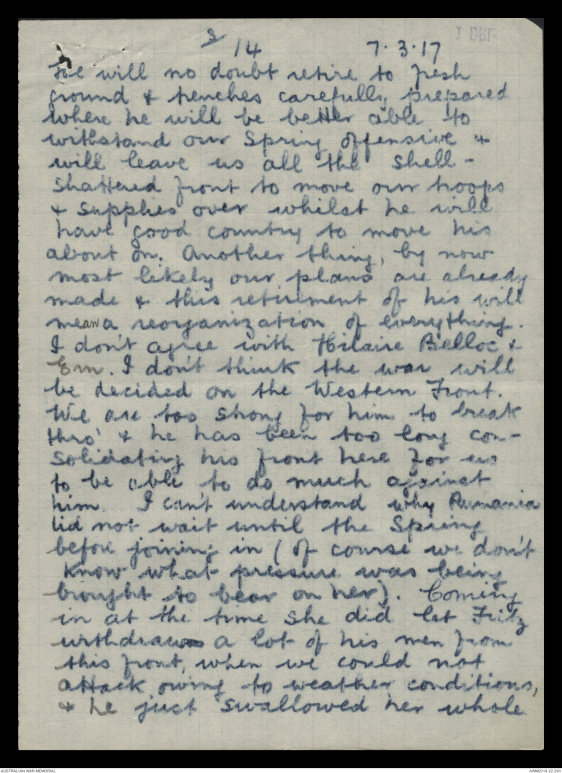 2/14 7.3.17
He will no doubt retire to fresh
ground & trenches carefully prepared
where he will be better able to
withstand our Spring offensive &
will leave us all the shell-
shattered front to move our troops
& supplies over whilst he will
have good country to move his
about on. Another thing, by now
most likely our plans are already
made & this retirement of his will
mean a reorganization of everything.
I don't agree with Hilaire Belloc &
Ern. I don't think the war will
be decided on the Western Front.
We are too strong for him to break
thro' & he has been too long con-
solidating his front here for us
to be able to do much against
him. I can't understand why Rumania
did not wait until the Spring
before joining in (of course we don't
know what pressure was being
brought to bear on her). Coming
in at the time she did let Fritz
withdraw a lot of his men from
this front, when we could not
attack owing to weather conditions,
& he just swallowed her whole
AUSTRALIAN WAR MEMORIAL